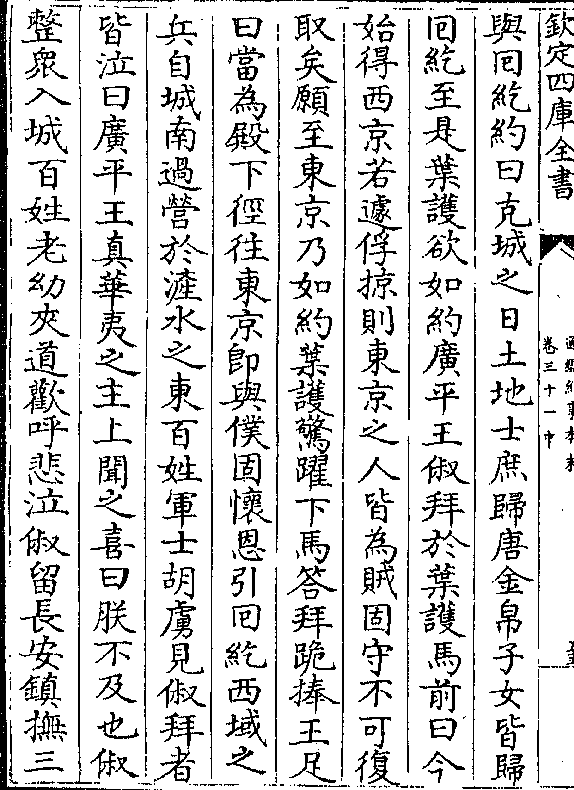 欽定四庫全書
通鑑紀事本末
卷三十一中
與囘紇約曰克城之日土地士庶歸唐金帛子女皆歸
囘紇至是葉護欲如約廣平王俶拜於葉護馬前曰今
始得西京若遽俘掠則東京之人皆為賊固守不可復
取矣願至東京乃如約葉護驚躍下馬答拜跪捧王足
曰當為殿下徑往東京即與僕固懷恩引囘紇西域之
兵自城南過營於滻水之東百姓軍士胡虜見俶拜者
皆泣曰廣平王真華夷之主上聞之喜曰朕不及也俶
整衆入城百姓老幼夾道歡呼悲泣俶留長安鎮撫三